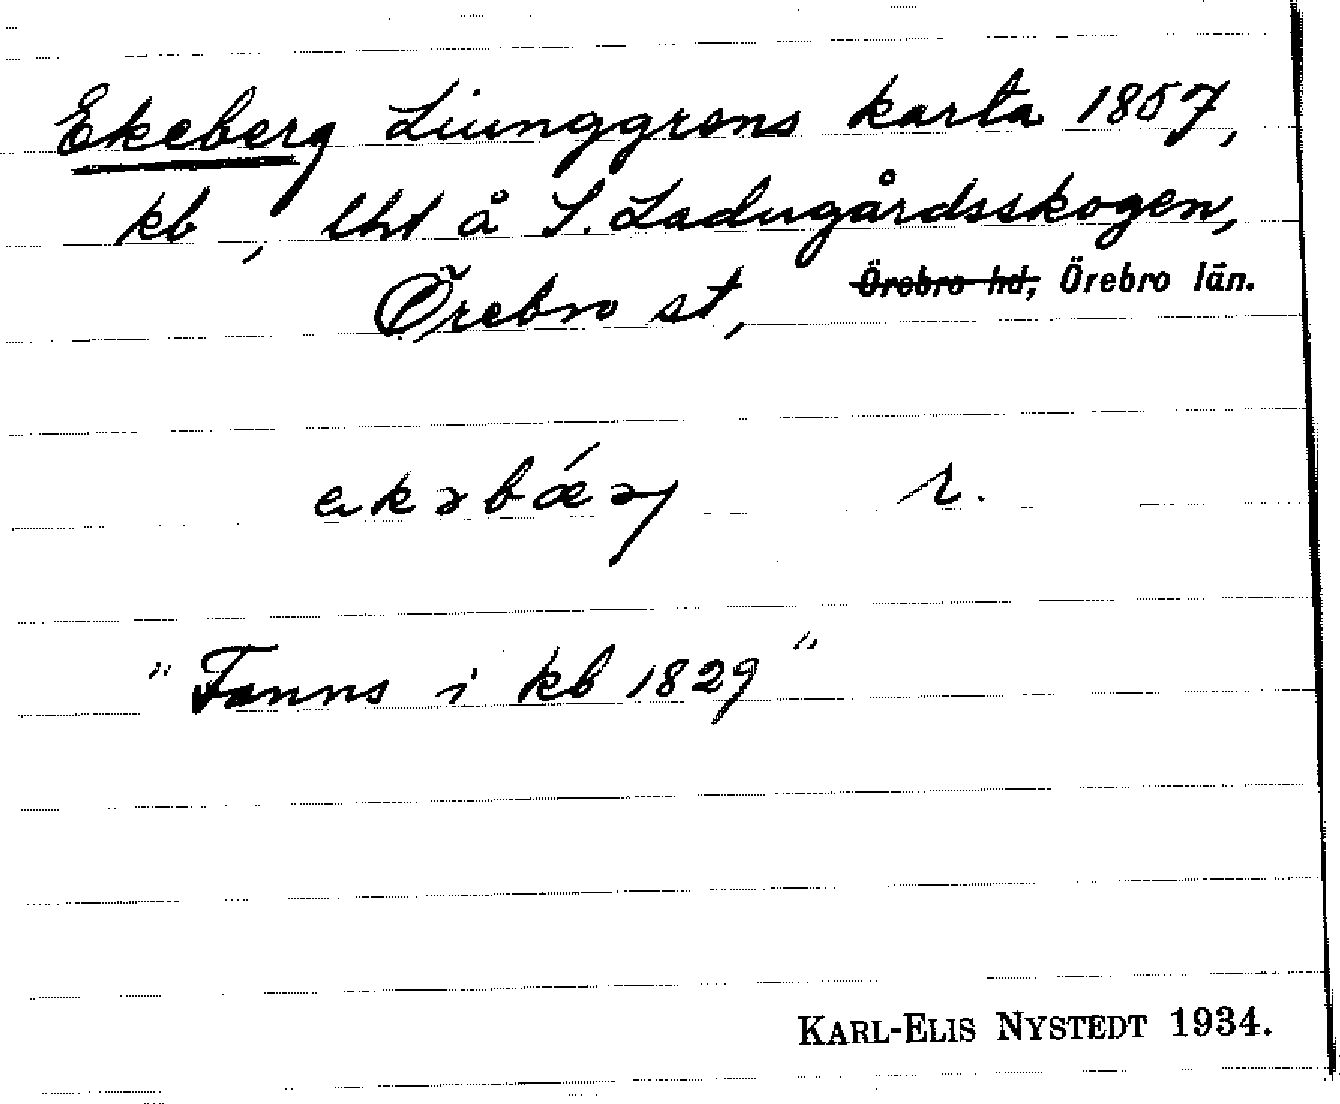 Ekeberg Liunggrens karta 1857,
kb, lht å S. Ladugårdsskogen,
Örebro st, Örebro hd, Örebro län.
r.
"Fanns i kb 1829"
KARL-ELIS NYSTEDT 1934.